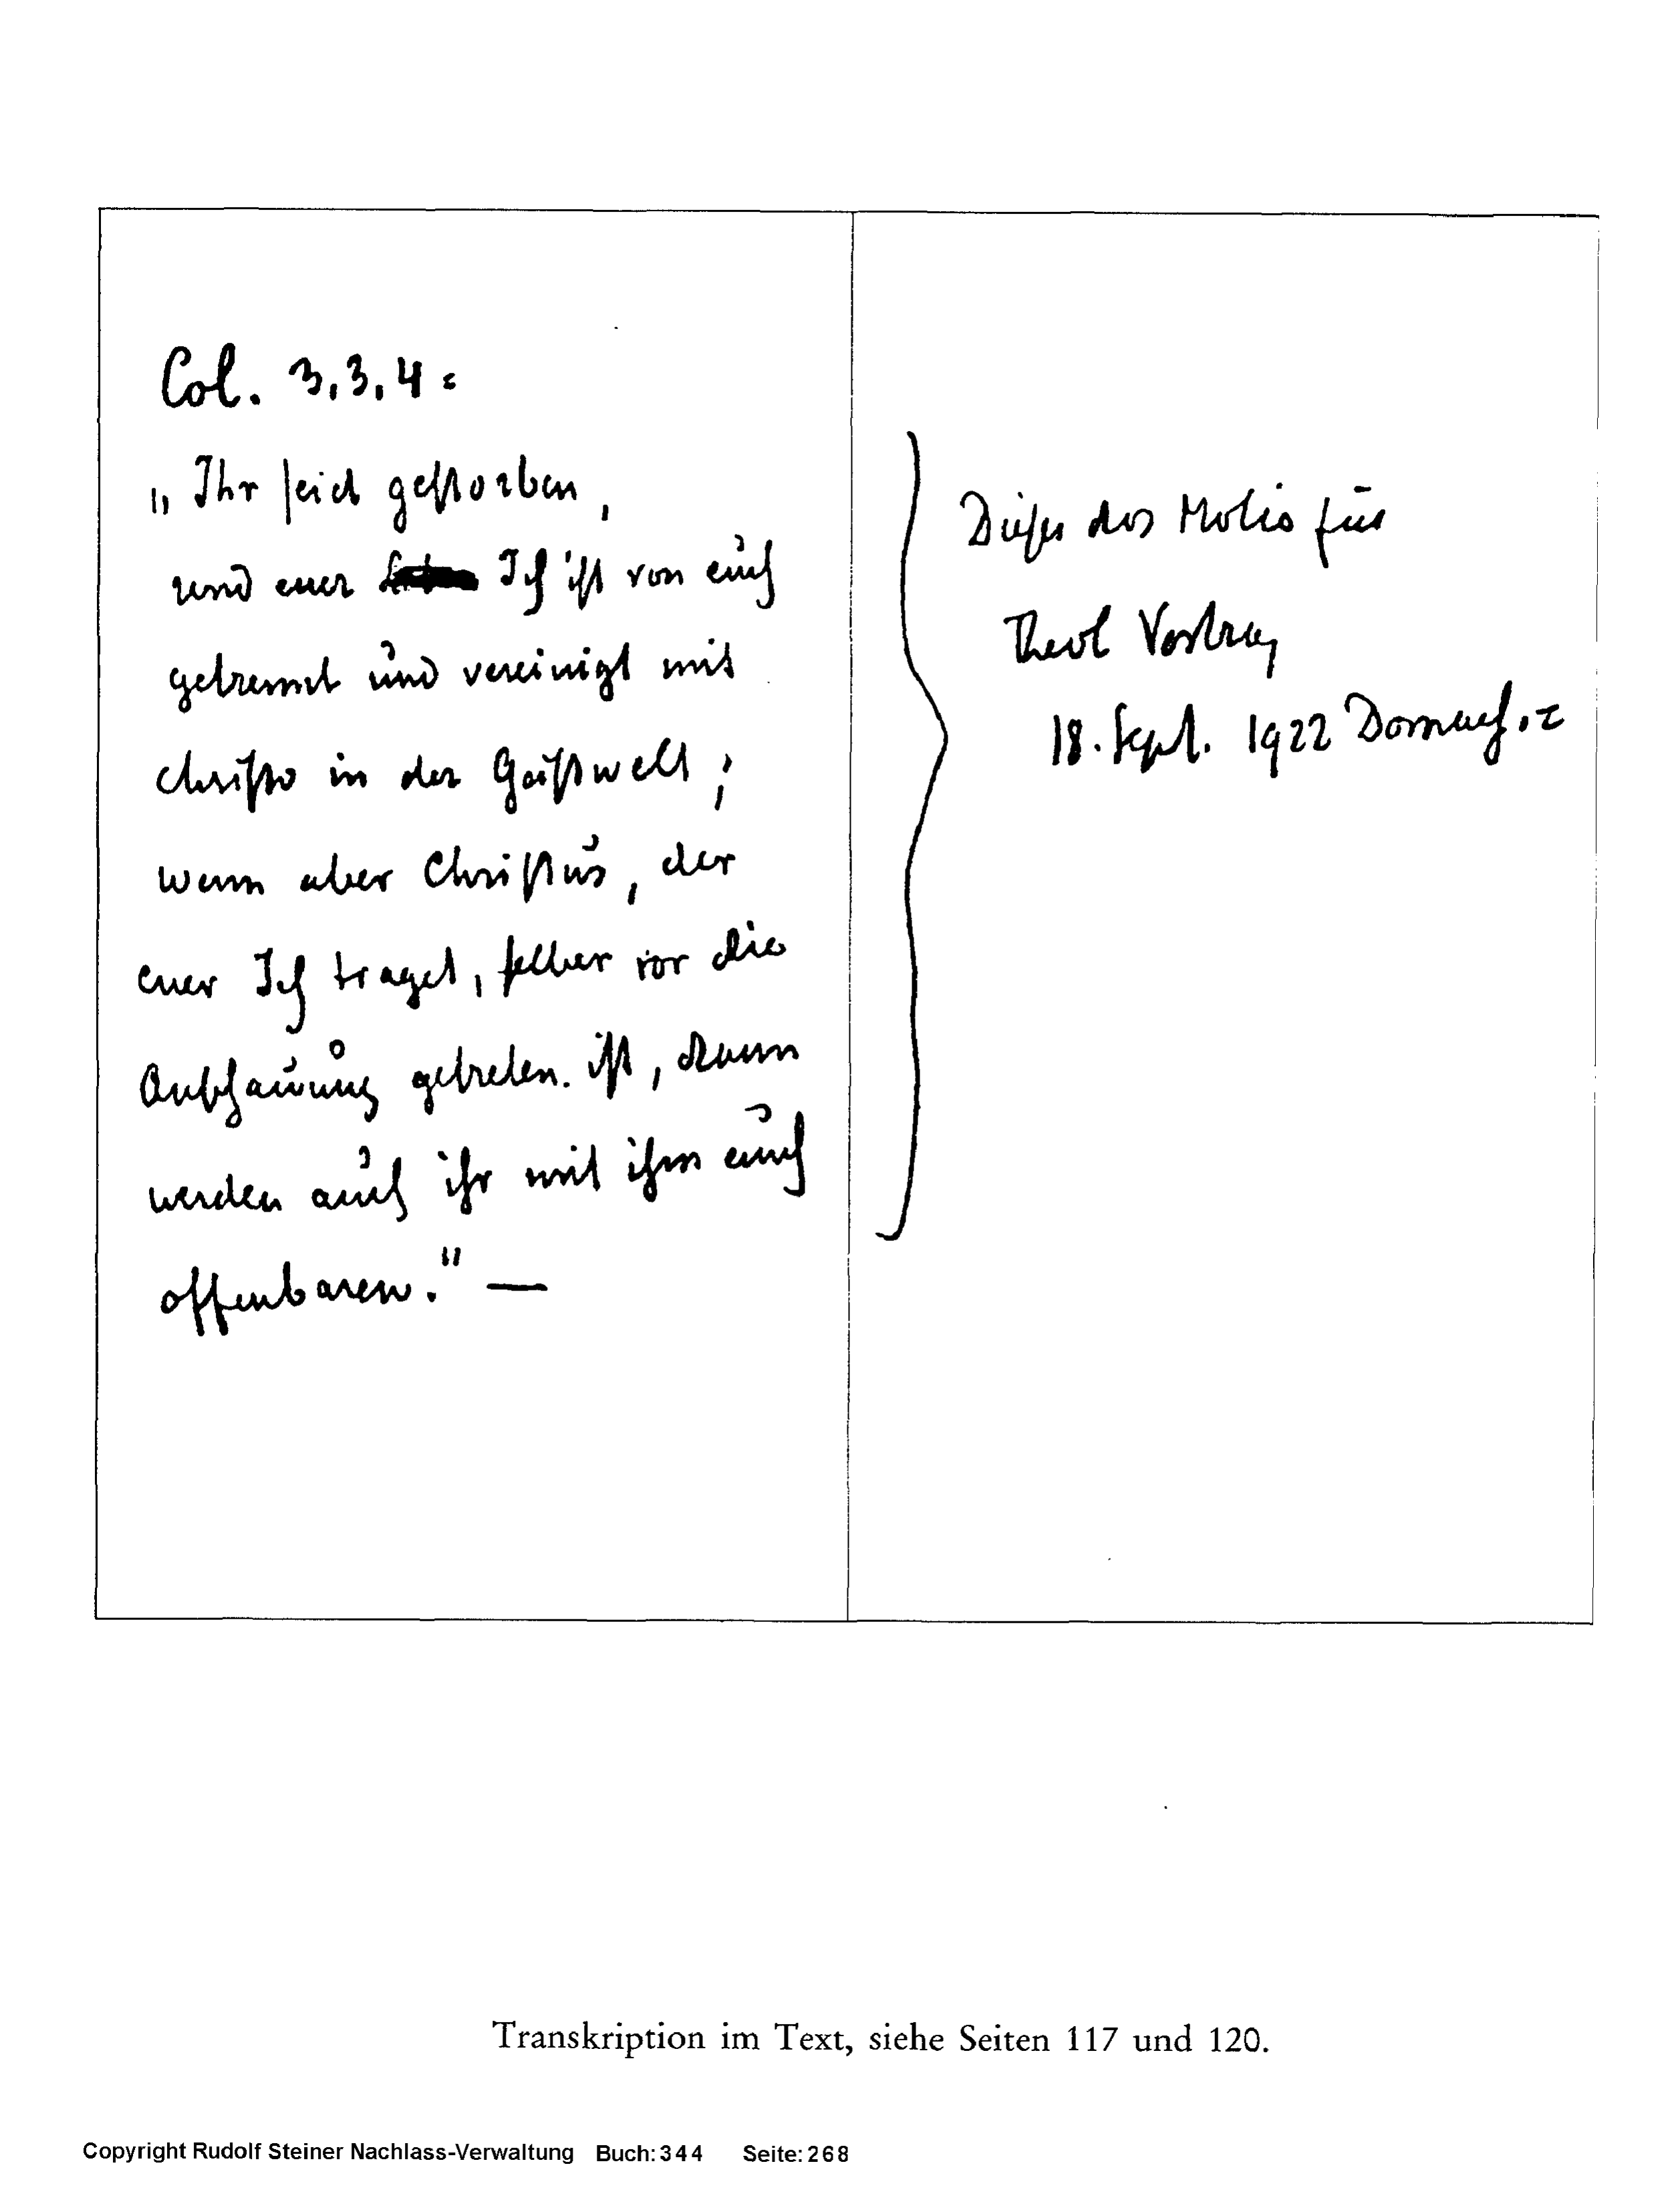 Col. 3,3,4 =
„Ihr seid gestorben,
und euer Ich ist von euch
getrennt und vereinigt mit
Christo in der Geistwelt;
wenn aber Christus, der
euer Ich traget, selber vor die
Anschauung getreten ist, dann
werden auch ihr mit ihm euch
offenbaren." —
Dieses das Motto für
Theol Vortrag
18. Sept. 1922 Dornach. =
Transkription im Text, siehe Seiten 117 und 120.
Copyright Rudolf Steiner Nachlass-Verwaltung Buch: 344 Seite: 268